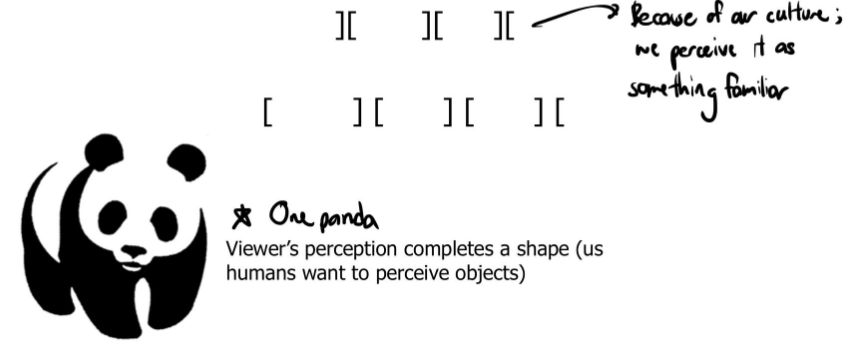 ][ ][ ][
Because of our culture;
we perceive it as
something familiar
[ ][ ][ ][
☆ One panda
Viewer's perception completes a shape (us
humans want to perceive objects)